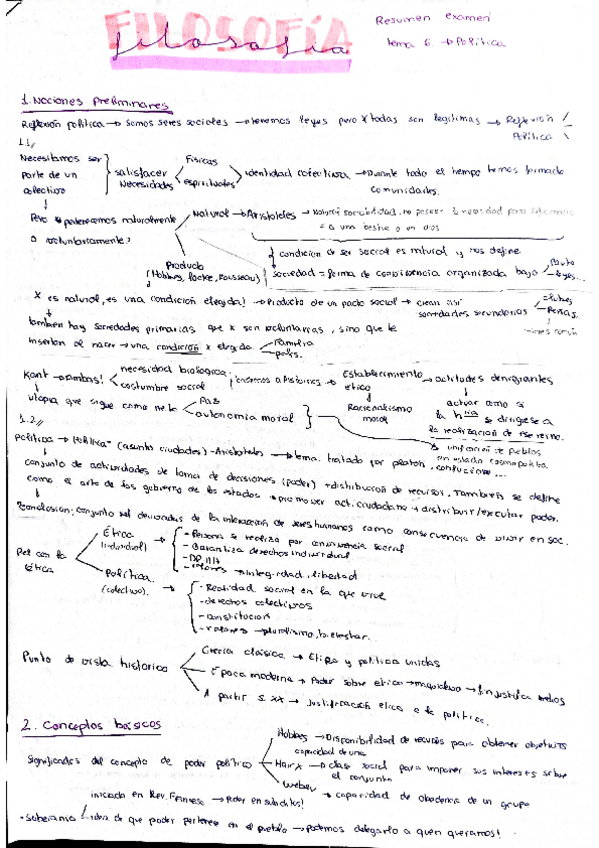 FILOSOFÍA
filosofía
Resumen examen
Tema 6. → Política
1. Nociones preliminares
Reflexión política → Somos seres sociales → tenemos leyes pero x todas son legítimas → Reflexión
Política
1.1//
Necesitamos ser parte de un colectivo
satisfacer necesidades
Físicas
espirituales
identidad colectiva → Durante todo el tiempo hemos formado comunidades.
Pero → pertenecemos naturalmente o voluntariamente?
Natural → Aristóteles → no poseer necesidad para
= a una bestia o un dios
condición de ser social es natural y nos define
Producto
(Hobbes, Locke, Rousseau)
sociedad = forma de convivencia organizada bajo
leyes...
x es natural, es una condición elegida! → Producto de un pacto social → crean así sociedades secundarias
clubes
Peñas.
también hay sociedades primarias que x son voluntarias, sino que te
insertan al nacer → una condición x elegida
Familia
país.
Kant → ambas!
necesidad biológica
costumbre social
Establecimiento ético
→ actitudes denigrantes
Racionalismo moral
actuar como si
la hª se dirigiese a
la realización de ese reino.
utopía que sigue como meta
Paz
autonomía moral
unificación de pueblos
en estado cosmopolita.
1.2//
Política → "Política" (asunto ciudades) - Aristóteles → tema tratado por platón, confucio...
conjunto de actividades de toma de decisiones (poder) + distribución de recursos. También se define
como el arte de los gobierno de los estados → promover act. ciudadana → distribuir/ejecutar poder.
Conclusión: conjunto act derivadas de la interacción de seres humanos como consecuencia de vivir en soc.
Rel con la ética
Ética
(individual)
- Persona se realiza por convivencia social
- Garantiza derechos individual
- DD.HH
- valores → integridad, libertad
Política
(colectivo).
- Realidad social en la que vive
- derechos colectivos
- constitución
- valores → pluralismo, bienestar...
Punto de vista histórico
Grecia clásica → Ética y política unidas
Época moderna → Poder sobre ética → maquiavelo → fin justifica medios
A partir s. XX → Justificación ética a la política.
2. Conceptos básicos
Significados del concepto de poder político
Hobbes → Disponibilidad de recursos para obtener objetivos
Marx → capacidad de una clase social para imponer sus intereses sobre el conjunto
Weber → capacidad de obediencia de un grupo
iniciada en Rev. Francesa → Poder en súbditos!
• Soberanía
idea de que poder pertenece en el pueblo → podemos delegarlo a quien queramos!